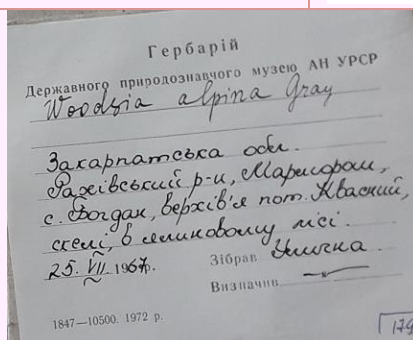 Гербарій
Державного природознавчого музею АН УРСР
Woodsia alpina Gray
Закарпатська обл.
Рахівський р-н, Мармарош,
с. Богдан, верхів'я пот. Квасний,
скелі, в ялиновому лісі.
25. VII. 1967р. Зібрав Уличка.
Визначив
1847—10500. 1972 р.
179